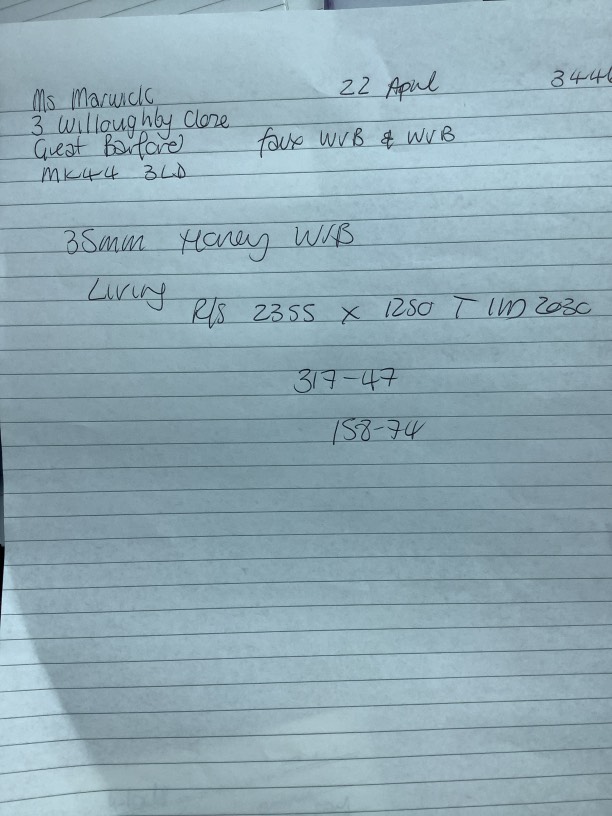 Ms Marwick 22 April 344
3 Willoughby Close
Great Barford faux WVB & WVB
MK44 3LD
35mm Honey WVB
Living
R/S 2355 x 1250 T 1M 2030
317-47
158-74